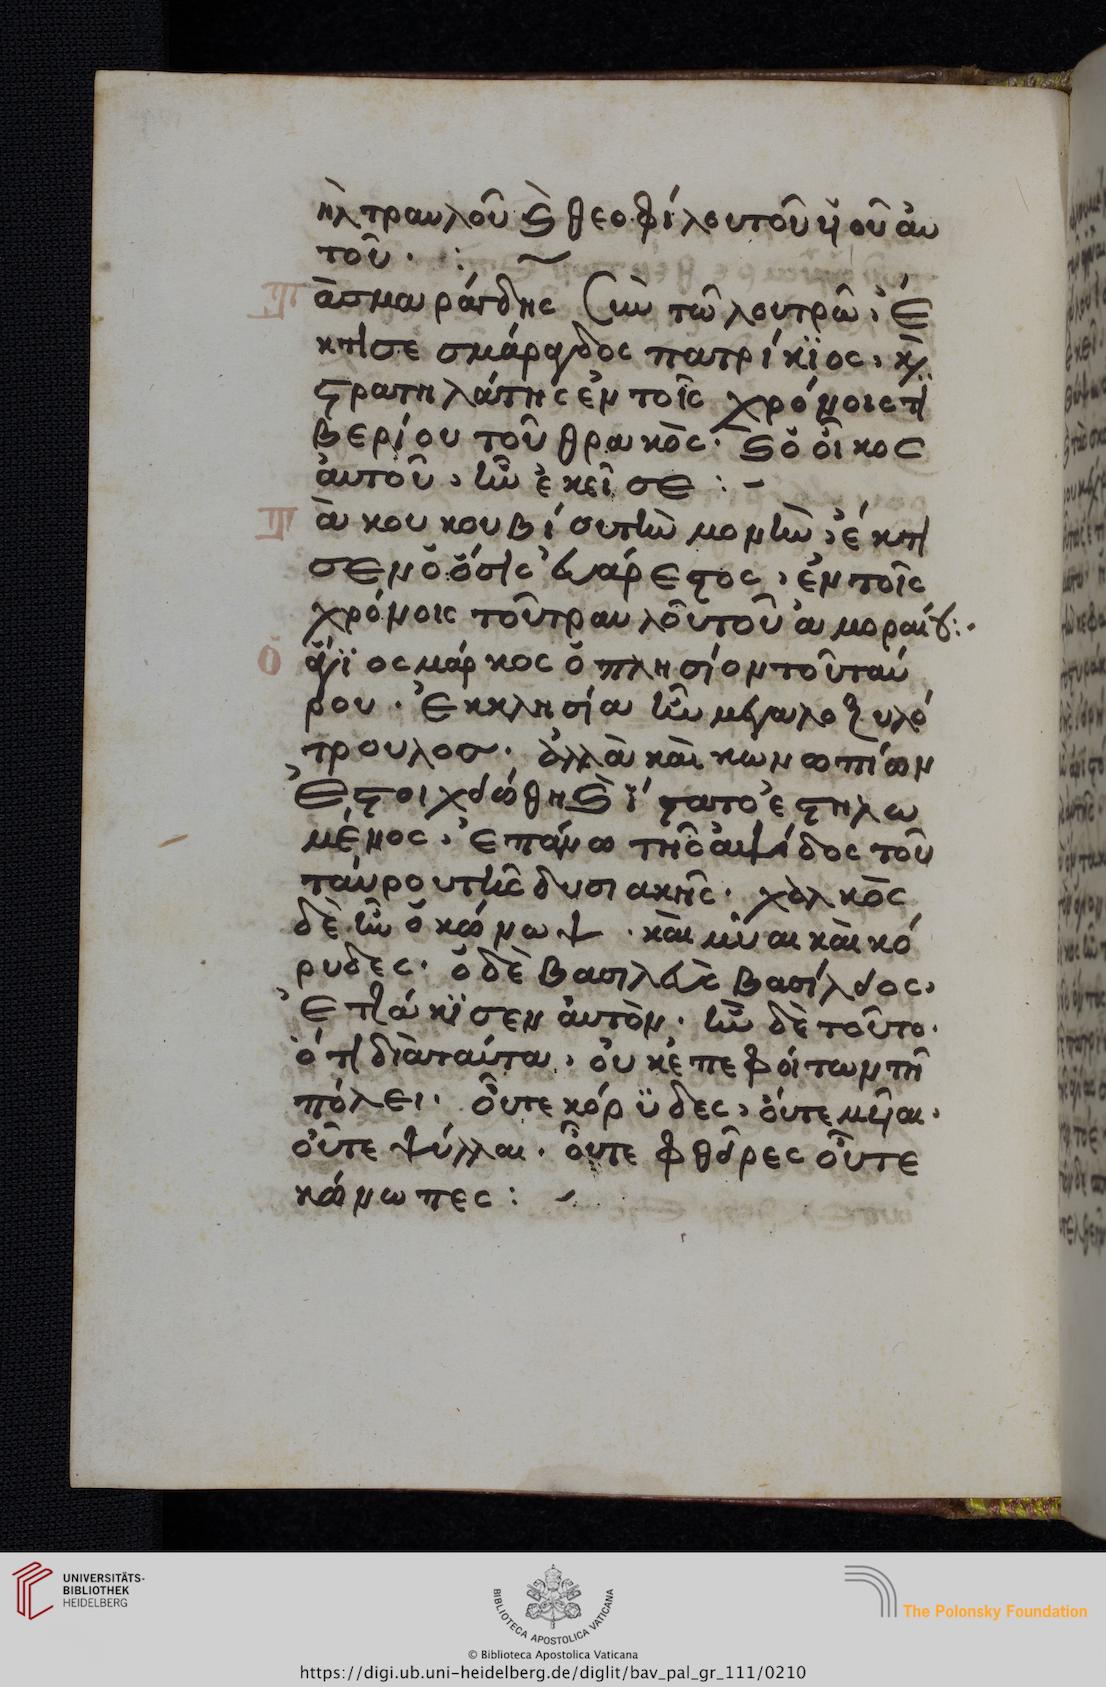 ὴλ τραυλοῦ Ϛ̀ θεοφίλου τοῦ ϋ̔οῦ ἀυ
τοῦ · : ~
Τ ὰ σμαράγδης σὺν τῶ λουτρῶ, ἔ
κτισε σμάραγδος πατρίκϊος, κὶ
στρατηλάτης ἐν τοῖς χρόνοις τι
βερίου τοῦ θρακὸς · Ϛ ὁ οἶκος
ἀυτοῦ, ἦν ἐκεῖσε : -
Τ ὰ κουκουβίου τὴν μονὴν, ἔκτι
σεν ὁ ὅσιος ἐυάρεστος, ἐν τοῖς
χρόνοις τοῦ τραυλοῦ τοῦ ἀμοραίου :·
Ὁ ἅγϊος μάρκος ὁ πλησίον τοῦ ταύ
ρου · ἐκκλησία ἦν μεγαλοξυλό
τρουλος · ἀλλὰ καὶ κωνωπίων
ἐστοιχειώθη Ϛ̀ ἵστατο ἐστηλω
μένος, ἐπάνω τῆς ἁψίδος τοῦ
ταύρου τῆς δυσιακῆς · χαλκὸς
δὲ ἦν ὁ κώνωψ · καὶ μύιαι καὶ κό
ρυδες · ὁ δὲ βασιλεὺς βασίλειος,
ἐπτάκϊσεν ἀυτὸν · ἦν δὲ τοῦτο ·
ὅτι διὰ ταῦτα, οὐκ ἐπεφοίτων τῆ
πόλει · οὔτε κόρϋδες, ὄυτε μῦιαι,
οὔτε ψύλλαι · οὔτε φθεῖρες οὔτε
κώνωπες : ~
UNIVERSITÄTS-
BIBLIOTHEK
HEIDELBERG
BIBLIOTECA APOSTOLICA VATICANA
The Polonsky Foundation
© Biblioteca Apostolica Vaticana
https://digi.ub.uni-heidelberg.de/diglit/bav_pal_gr_111/0210